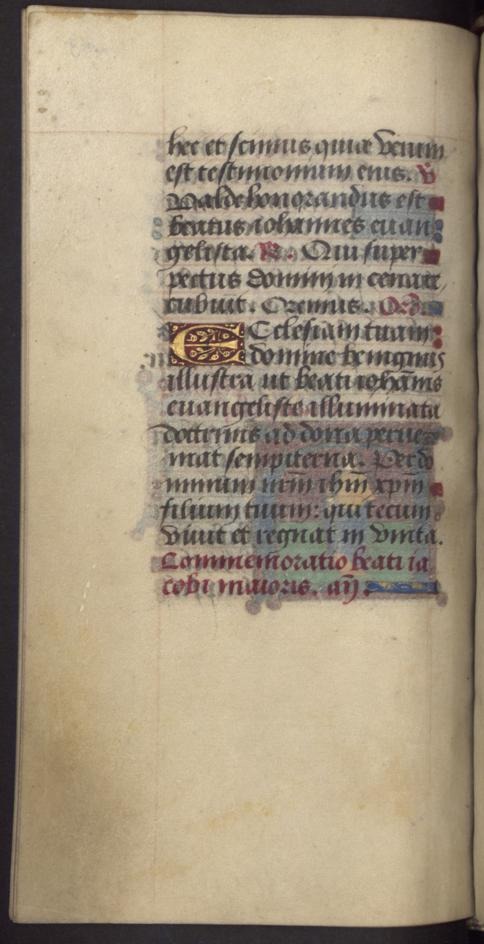 hec et scimus quia verum
est testimonium eius. V
Valde honorandus est
beatus iohannes euan
gelista. R. Qui super
pectus domini in cena re
cubuit. Oremus. Oro
Ecclesiam tuam
domine benignus
illustra ut beati iohanis
euangeliste illuminata
doctrinis ad dona perue
niat sempiterna. Per do
minum nrm ihm xpm
filium tuum: qui tecum
viuit et regnat in vnita.
Commemoratio beati ia
cobi maioris. an